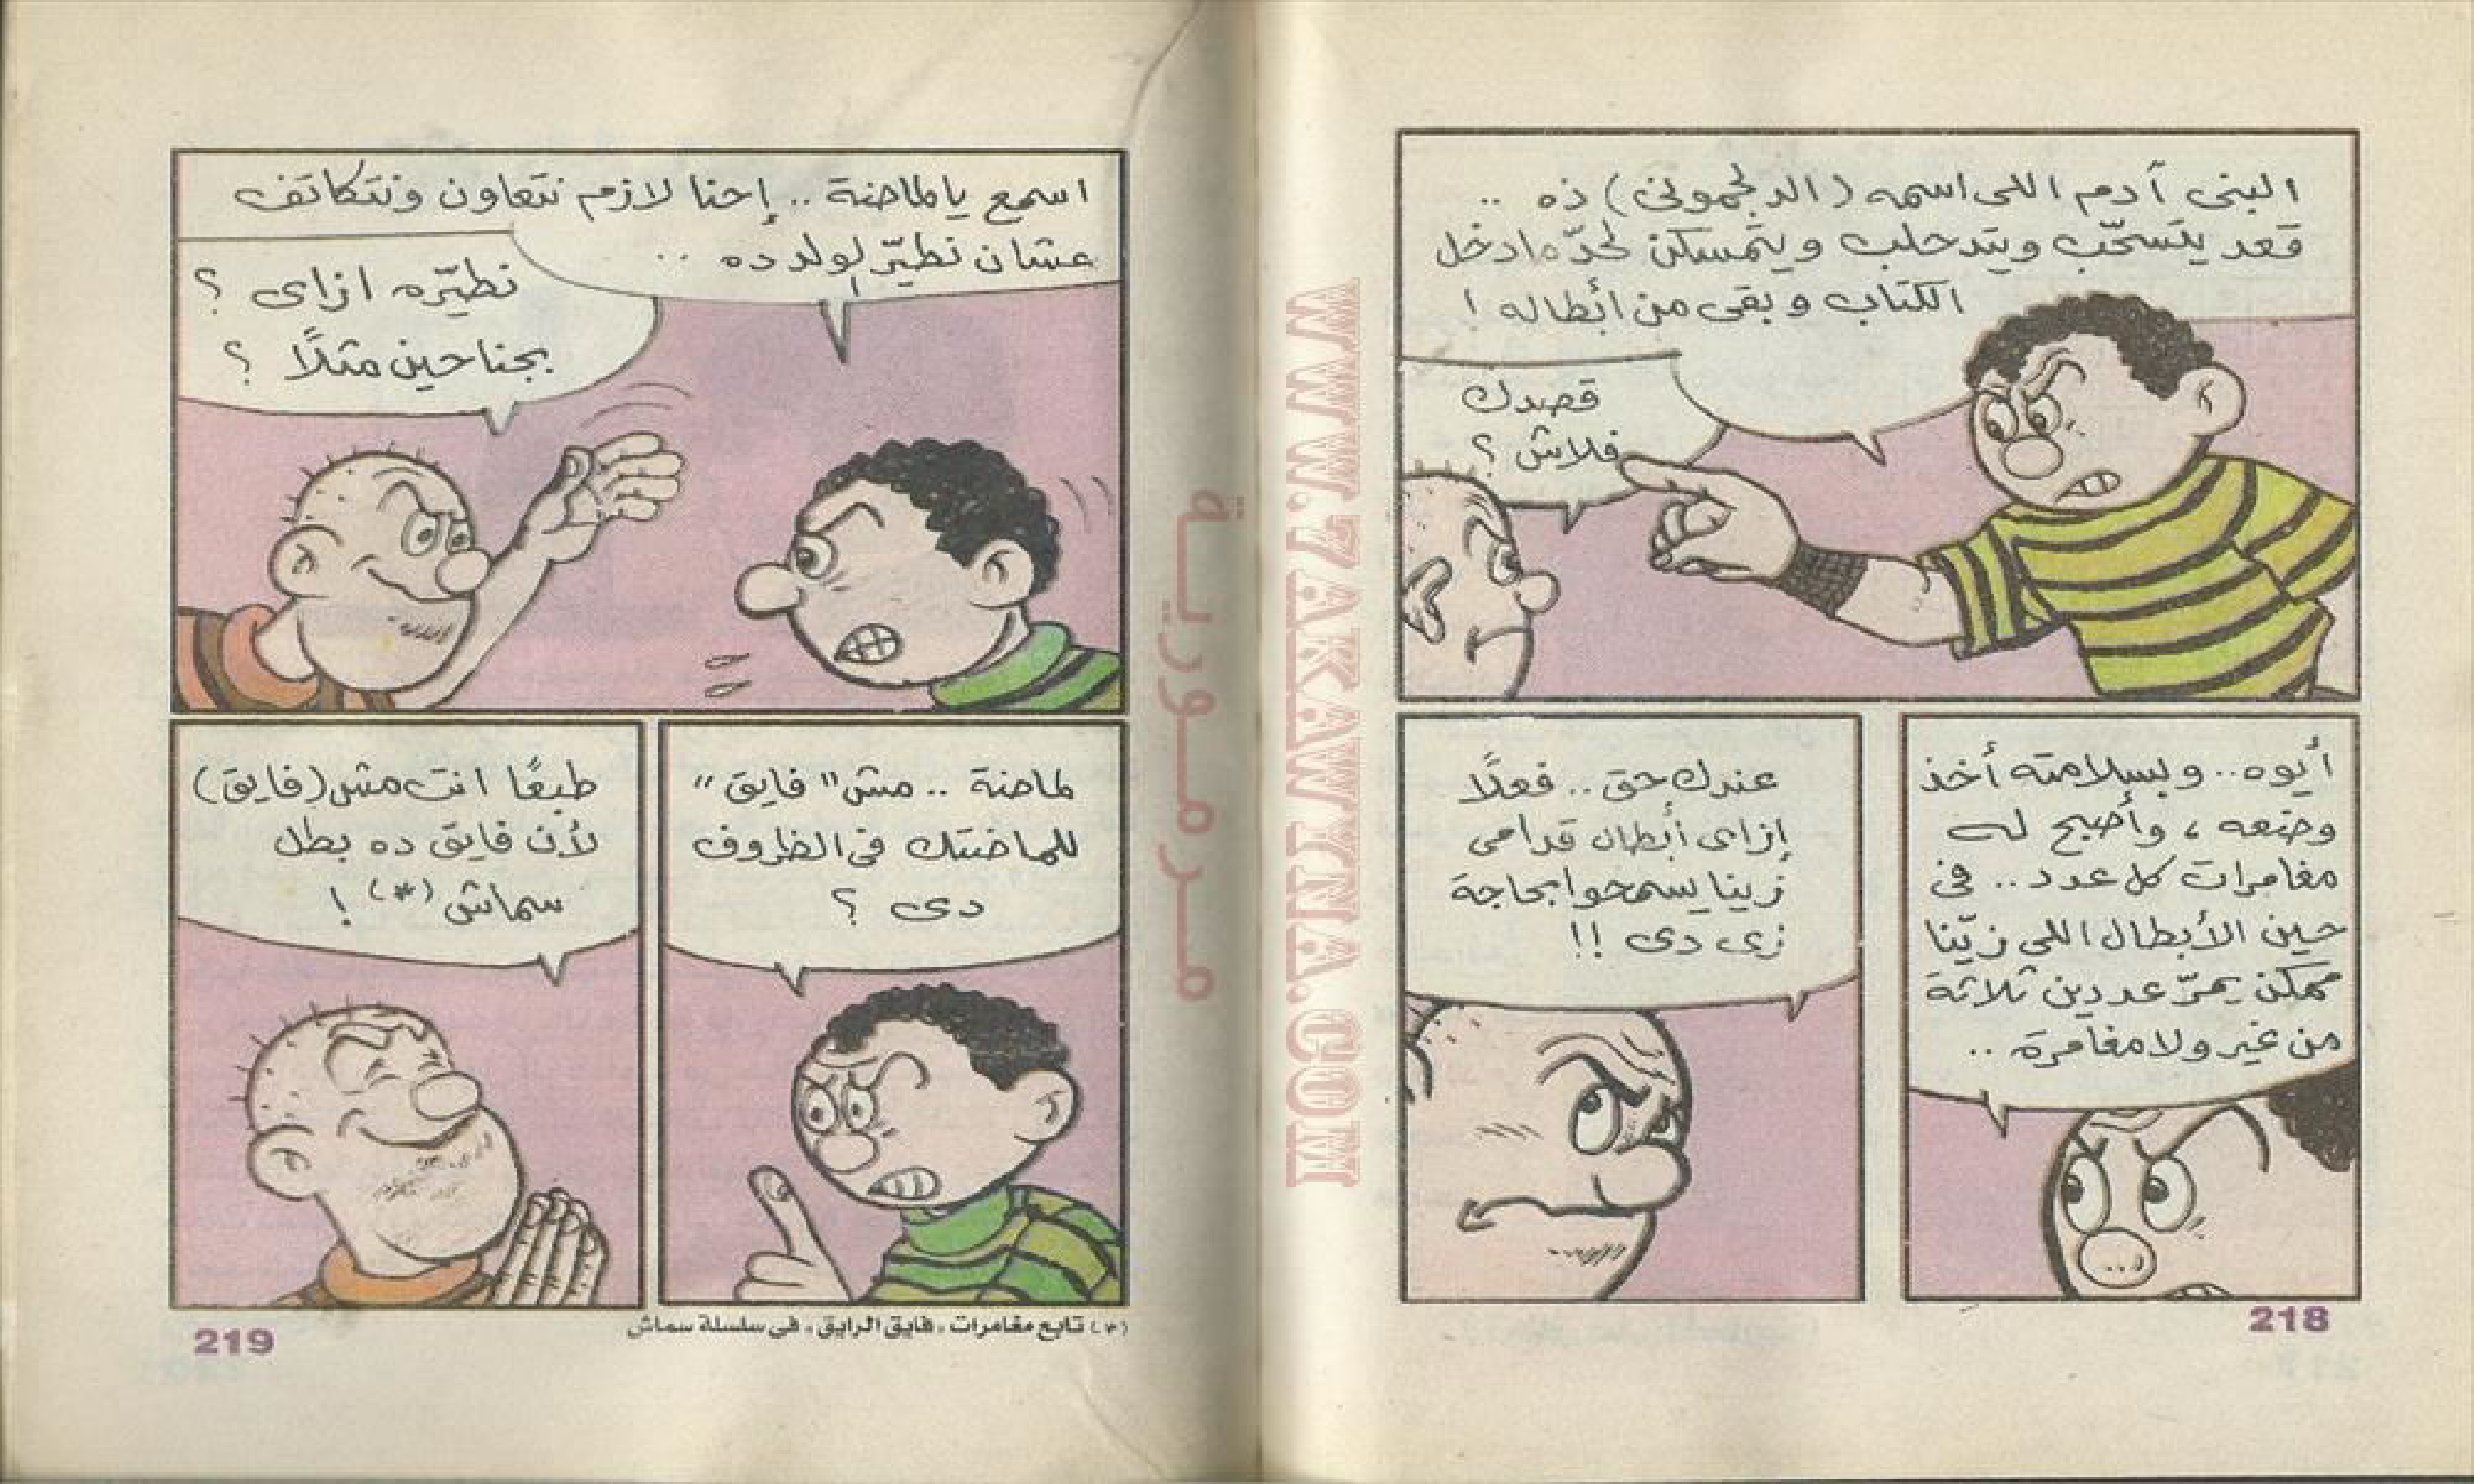 البنى آدم اللى اسمه (الدلجمونى) ده ..
قعد يتسحّب ويتدحلب ويتمسكن لحدّ مادخل
الكتاب وبقى من أبطاله !
قصدك
فلاش ؟
أيوه.. وبسلامته أخذ
وضعه ، وأصبح له
مغامرات كل عدد.. فى
حين الأبطال اللى زيّنا
ممكن يمرّ عددين تلاتة
من غير ولا مغامرة ..
عندك حق .. فعلًا
إزاى أبطال قدامى
زينا يسمحوا بحاجة
زى دى !!
218
اسمع يالماضة .. إحنا لازم نتعاون ونتكاتف
عشان نطيّر لولد ده ..
نطيّره ازاى ؟
بجناحين مثلًا ؟
لماضة .. مش "فايق"
للماضتك فى الظروف
دى ؟
طبعًا انت مش (فايق)
لأن فايق ده بطل
سماش (*) !
(*) تابع مغامرات «فايق الرايق» فى سلسلة سماش
219
مرمورية
WWW.7AKAWATNA.COM